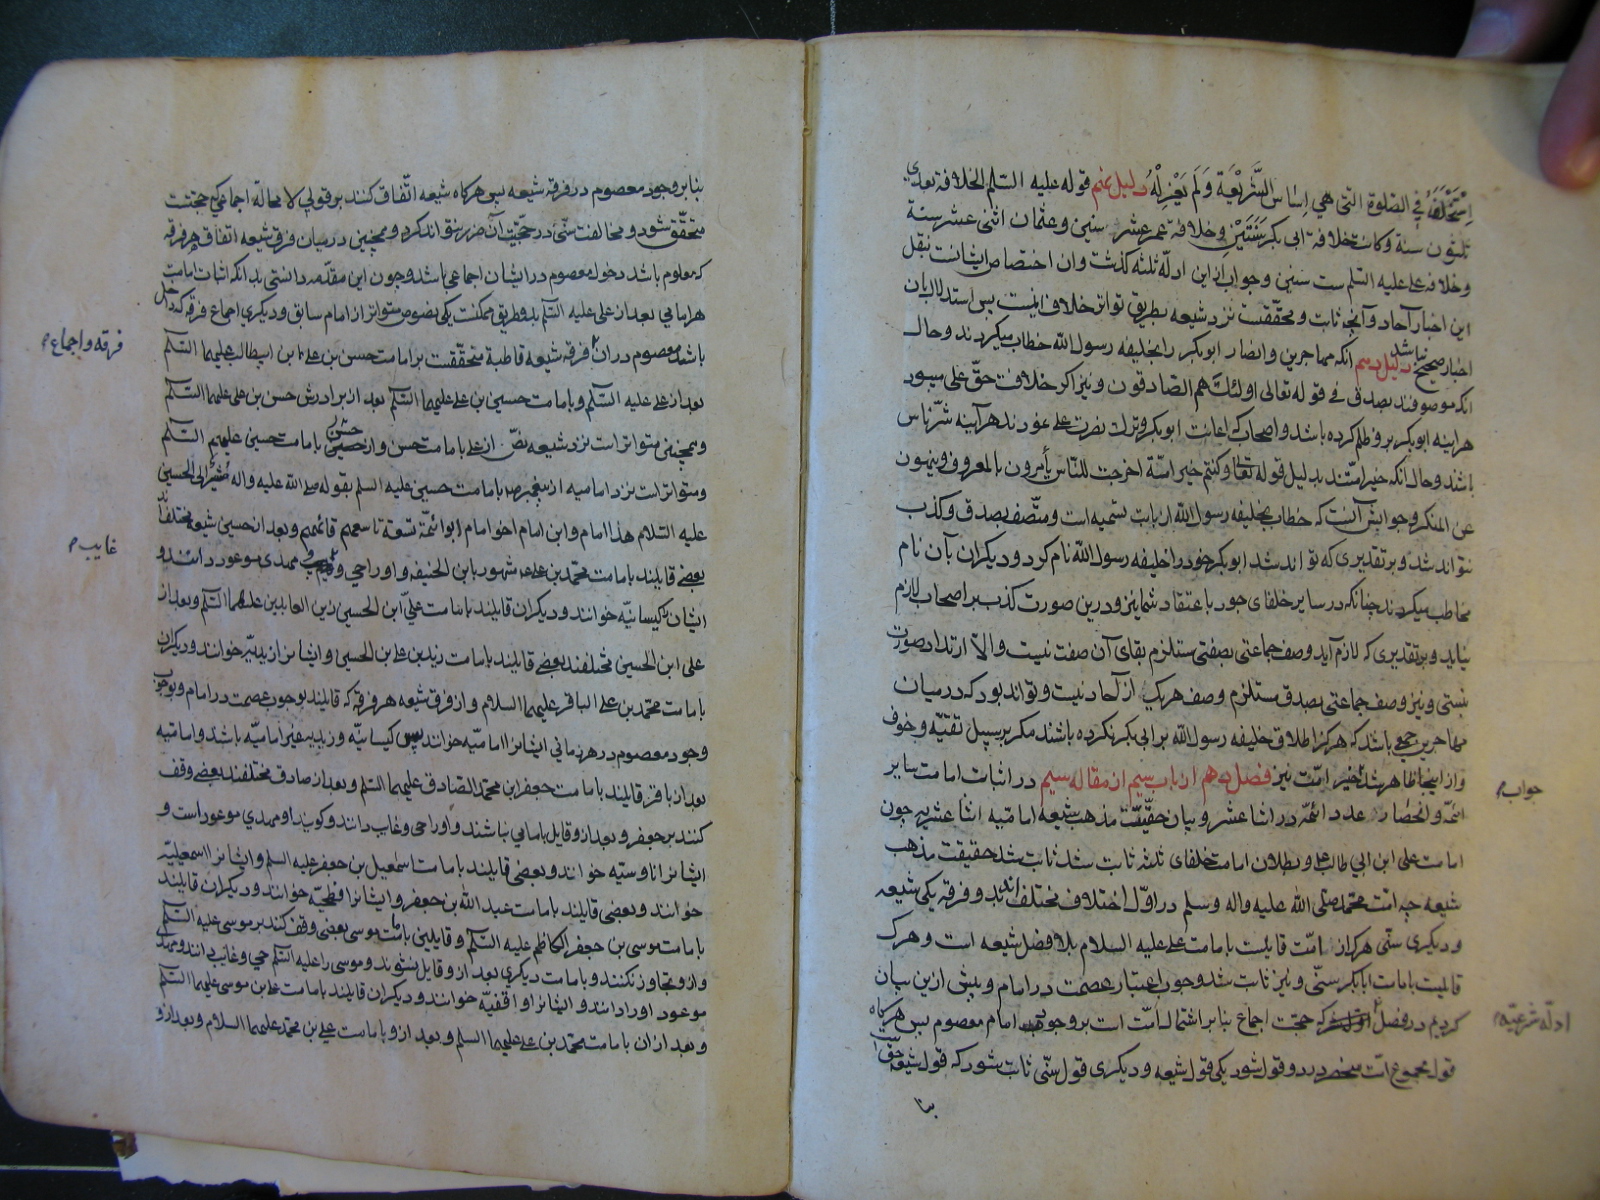 استخلفه في الصلوة التي هي اساس الشريعة ولم يعزله دليل نهم قوله عليه السلم الخلافة بعدي
ثلثون سنة وكانت خلافة ابي بكر سنتين وخلافة عمر عشر سنين وعثمان اثنى عشر سنة
وخلافه علي عليه السلم ست سنين وجواب از اين ادلّه ثلثه كذشت وان اختصاص ايشانست بنقل
اين اخبار آحاد وآنچه ثابت ومحققست نزد شيعه بطريق تواتر خلاف اينست پس استدلال بان
اخبار صحيح نباشد دليل دهم آنكه مهاجرين وانصار ابوبكر را بخليفه رسول الله خطاب ميكردند وحال
آنكه موصوفند بصدق في قوله تعالى اولئك هم الصادقون ونيز اكر خلافت حقّ على ميبود
هراينه ابوبكر برو ظلم كرده باشد واصحاب كه اعانت ابوبكر وترك نصرت على نمودند هرآينه شرّ ناس
باشند وحال آنكه خير امتند بدليل قوله تعالى وكنتم خير امّة اخرجت للنّاس يأمرون بالمعروف وينهون
عن المنكر وجوابش آنست كه خطاب بخليفه رسول الله از بابت تسميه است ومتّصف بصدق وكذب
نتواند شد وبر تقديرى كه تواند شد ابوبكر خود را خليفه رسول الله نام كرد وديكران بآن نام
مخاطب ميكردند چنانكه در ساير خلفاى جور باعتقاد شما نيز ودرين صورت كذب بر اصحاب لازم
نيايد وبر تقديرى كه لازم آيد وصف جماعتى بصفتى مستلزم بقاى آن صفت نيست والّا ارتداد صورت
نبستى ونيز وصف جماعتى بصدق مستلزم وصف هريك از آحاد نيست وتواند بود كه در ميان
مهاجرين جمعى باشد كه هركز اطلاق خليفه رسول الله بر ابى بكر نكرده باشند مكر بر سبيل تقيّه وخوف
واز اينجا ظاهر شد خير امّت نيز فصل دهم از باب سيم از مقاله سيم در اثبات امامت ساير
ائمّه وانحصار عدد ائمّه در اثنا عشر وبيان حقّيّت مذهب شيعه اماميّه اثنا عشريه چون
امامت على ابن ابي طالب على وبطلان امامت خلفاى ثلثه ثابت شد ثابت شد حقيقت مذهب
شيعه چه امت محمد صلى الله عليه واله وسلم در اوّل اختلاف مختلف اند بدو فرقه يكى شيعه
وديكرى سنّى هركه از امّت قايلست بامامت على عليه السلام بلا فصل شيعه است وهركه
قايلست بامامت ابابكر سنّى ونيز ثابت شد وجوب اعتبار عصمت در امام وپيش ازين بيان
كرديم در فصل كه حجّت اجماع بنابر اشتمال امّت است بر وجود امام معصوم پس هركاه
قول مجموع امّت منحصر در دو قول شود يكى قول شيعه وديكرى قول سنّى ثابت شود كه قول شيعه حقّ است
بنا
جواب م
ادلّه شرعيّه م
بنابر وجود معصوم در فرقه شيعه پس هركاه شيعه اتّفاق كنند بر قولي لا محالة اجماعى كه حجتست
متحقّق شود ومخالفت سنّى در حجّيت آن ضرر نتواند كرد وهمچنين در ميان فرق شيعه اتفاق هر فرقه
كه معلوم باشد دخول معصوم در ايشان اجماعى باشد وچون اين مقدّمه دانستى بدانكه اثبات امامت
هر امامى بعد از على عليه السلم بدو طريق ممكنست يكى نصوص متواتر از امام سابق وديكرى اجماع فرقه كه داخل
باشد معصوم در ان فرقه شيعه قاطبة متحقّقست بر امامت حسن بن على ابن ابيطالب عليهما السلم
بعد از على عليه السلم وبامامت حسين بن على عليهما السلم بعد از برادرش حسن بن على عليهما السلم
وهمچنين متواتر است نزد شيعه نصّ از على بامامت حسن واز حسن بامامت حسين عليهم السلم
ومتواتر است نزد اماميه از پيغمبر ص بامامت حسين عليه السلم بقوله صلى الله عليه واله مشيرا الى الحسين
عليه السلام هذا امام وابن امام اخو امام ابو ائمّة تسعة تاسعهم قائمهم وبعد از حسين شيعه مختلفند
بعضى قايلند بامامت محمد بن على مشهور بابن الحنفيه واورا حى ومهدى موعود دانند و
ايشان را كيسانيّه خوانند وديكران قايلند بامامت عليّ ابن الحسين زين العابدين عليهما السلم وبعد از
على ابن الحسين مختلفند بعضى قايلند بامامت زيد بن على بن الحسين وايشانرا زيديّه خوانند وديكران
بامامت محمد بن على الباقر عليهما السلام واز فرق شيعه هر فرقه كه قايلند بوجوب عصمت در امام وبوجوب
وجود معصوم در هر زمانى ايشانرا اماميّه خوانند پس كيسانيّه وزيديه غير اماميّه باشد واماميّه
بعد از باقر قايلند بامامت جعفر ابن محمد الصادق عليهما السلم وبعد از صادق مختلفند بعضى وقف
كنند بر جعفر وبعد ازو قايل بامامى نباشند واورا حى وغايب دانند وكويند او مهدى موعود است و
ايشانرا ناوسيّه خوانند وبعضى قايلند بامامت اسمعيل بن جعفر عليه السلم وايشانرا اسمعيليّه
خوانند وبعضى قايلند بامامت عبد الله بن جعفر وايشانرا افطحيّه خوانند وديكران قايلند
بامامت موسى بن جعفر الكاظم عليه السلم وقايلين بامامت موسى بعضى وقف كنند بر موسى عليه السلم
وازو تجاوز نكنند وبامامت ديكرى بعد ازو قايل نشوند وموسى را عليه السلم حى وغايب دانند ومهدى
موعود اورا دانند وايشانرا واقفيّه خوانند وديكران قايلند بامامت على بن موسى عليهما السلم
وبعد ازان بامامت محمد بن على عليهما السلم وبعد ازو بامامت على بن محمد عليهما السلام وبعد ازو
فرقه واجماع م
غايب م